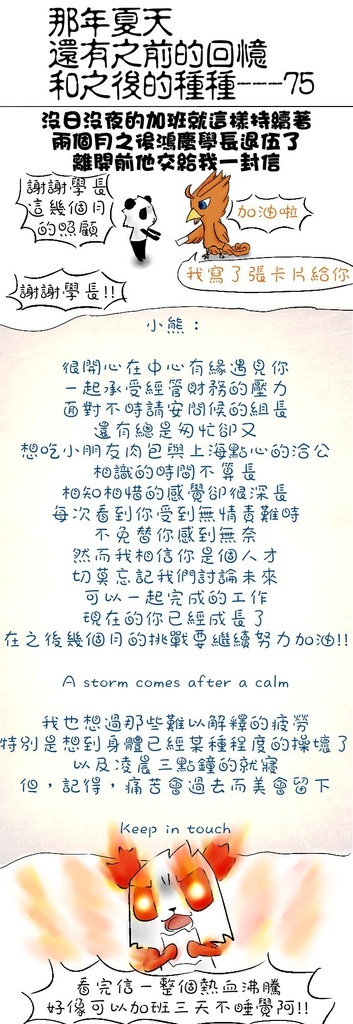 那年夏天
還有之前的回憶
和之後的種種---75
沒日沒夜的加班就這樣持續著
兩個月之後鴻慶學長退伍了
離開前他交給我一封信
謝謝學長
這幾個月
的照顧
加油啦
我寫了張卡片給你
謝謝學長!!
小熊：
很開心在中心有緣遇見你
一起承受經管財務的壓力
面對不時請安問候的組長
還有總是匆忙卻又
想吃小朋友肉包與上海點心的洽公
相識的時間不算長
相知相惜的感覺卻很深長
每次看到你受到無情責難時
不免替你感到無奈
然而我相信你是個人才
切莫忘記我們討論未來
可以一起完成的工作
現在的你已經成長了
在之後幾個月的挑戰要繼續努力加油!!
A storm comes after a calm
我也想過那些難以解釋的疲勞
特別是想到身體已經某種程度的操壞了
以及凌晨三點鐘的就寢
但，記得，痛苦會過去而美會留下
Keep in touch
看完信一整個熱血沸騰
好像可以加班三天不睡覺阿!!